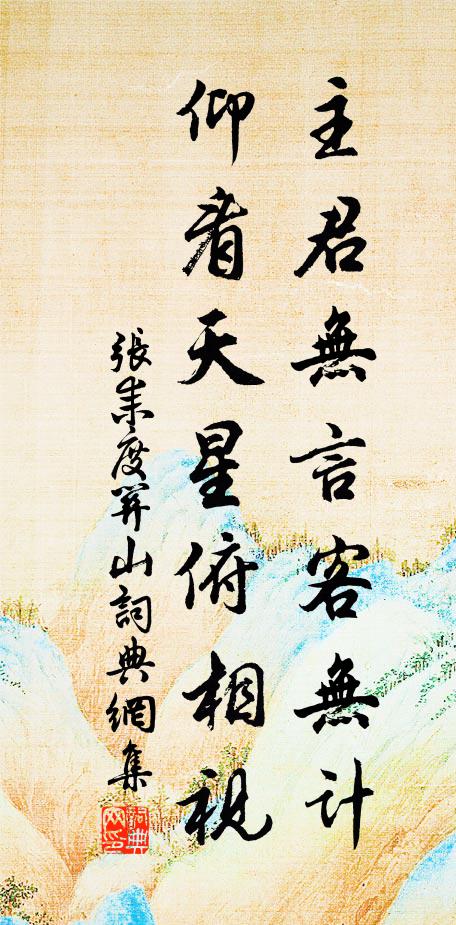 主君無言客無計
仰看天星俯相視
張耒度關山詞典網集
詞典